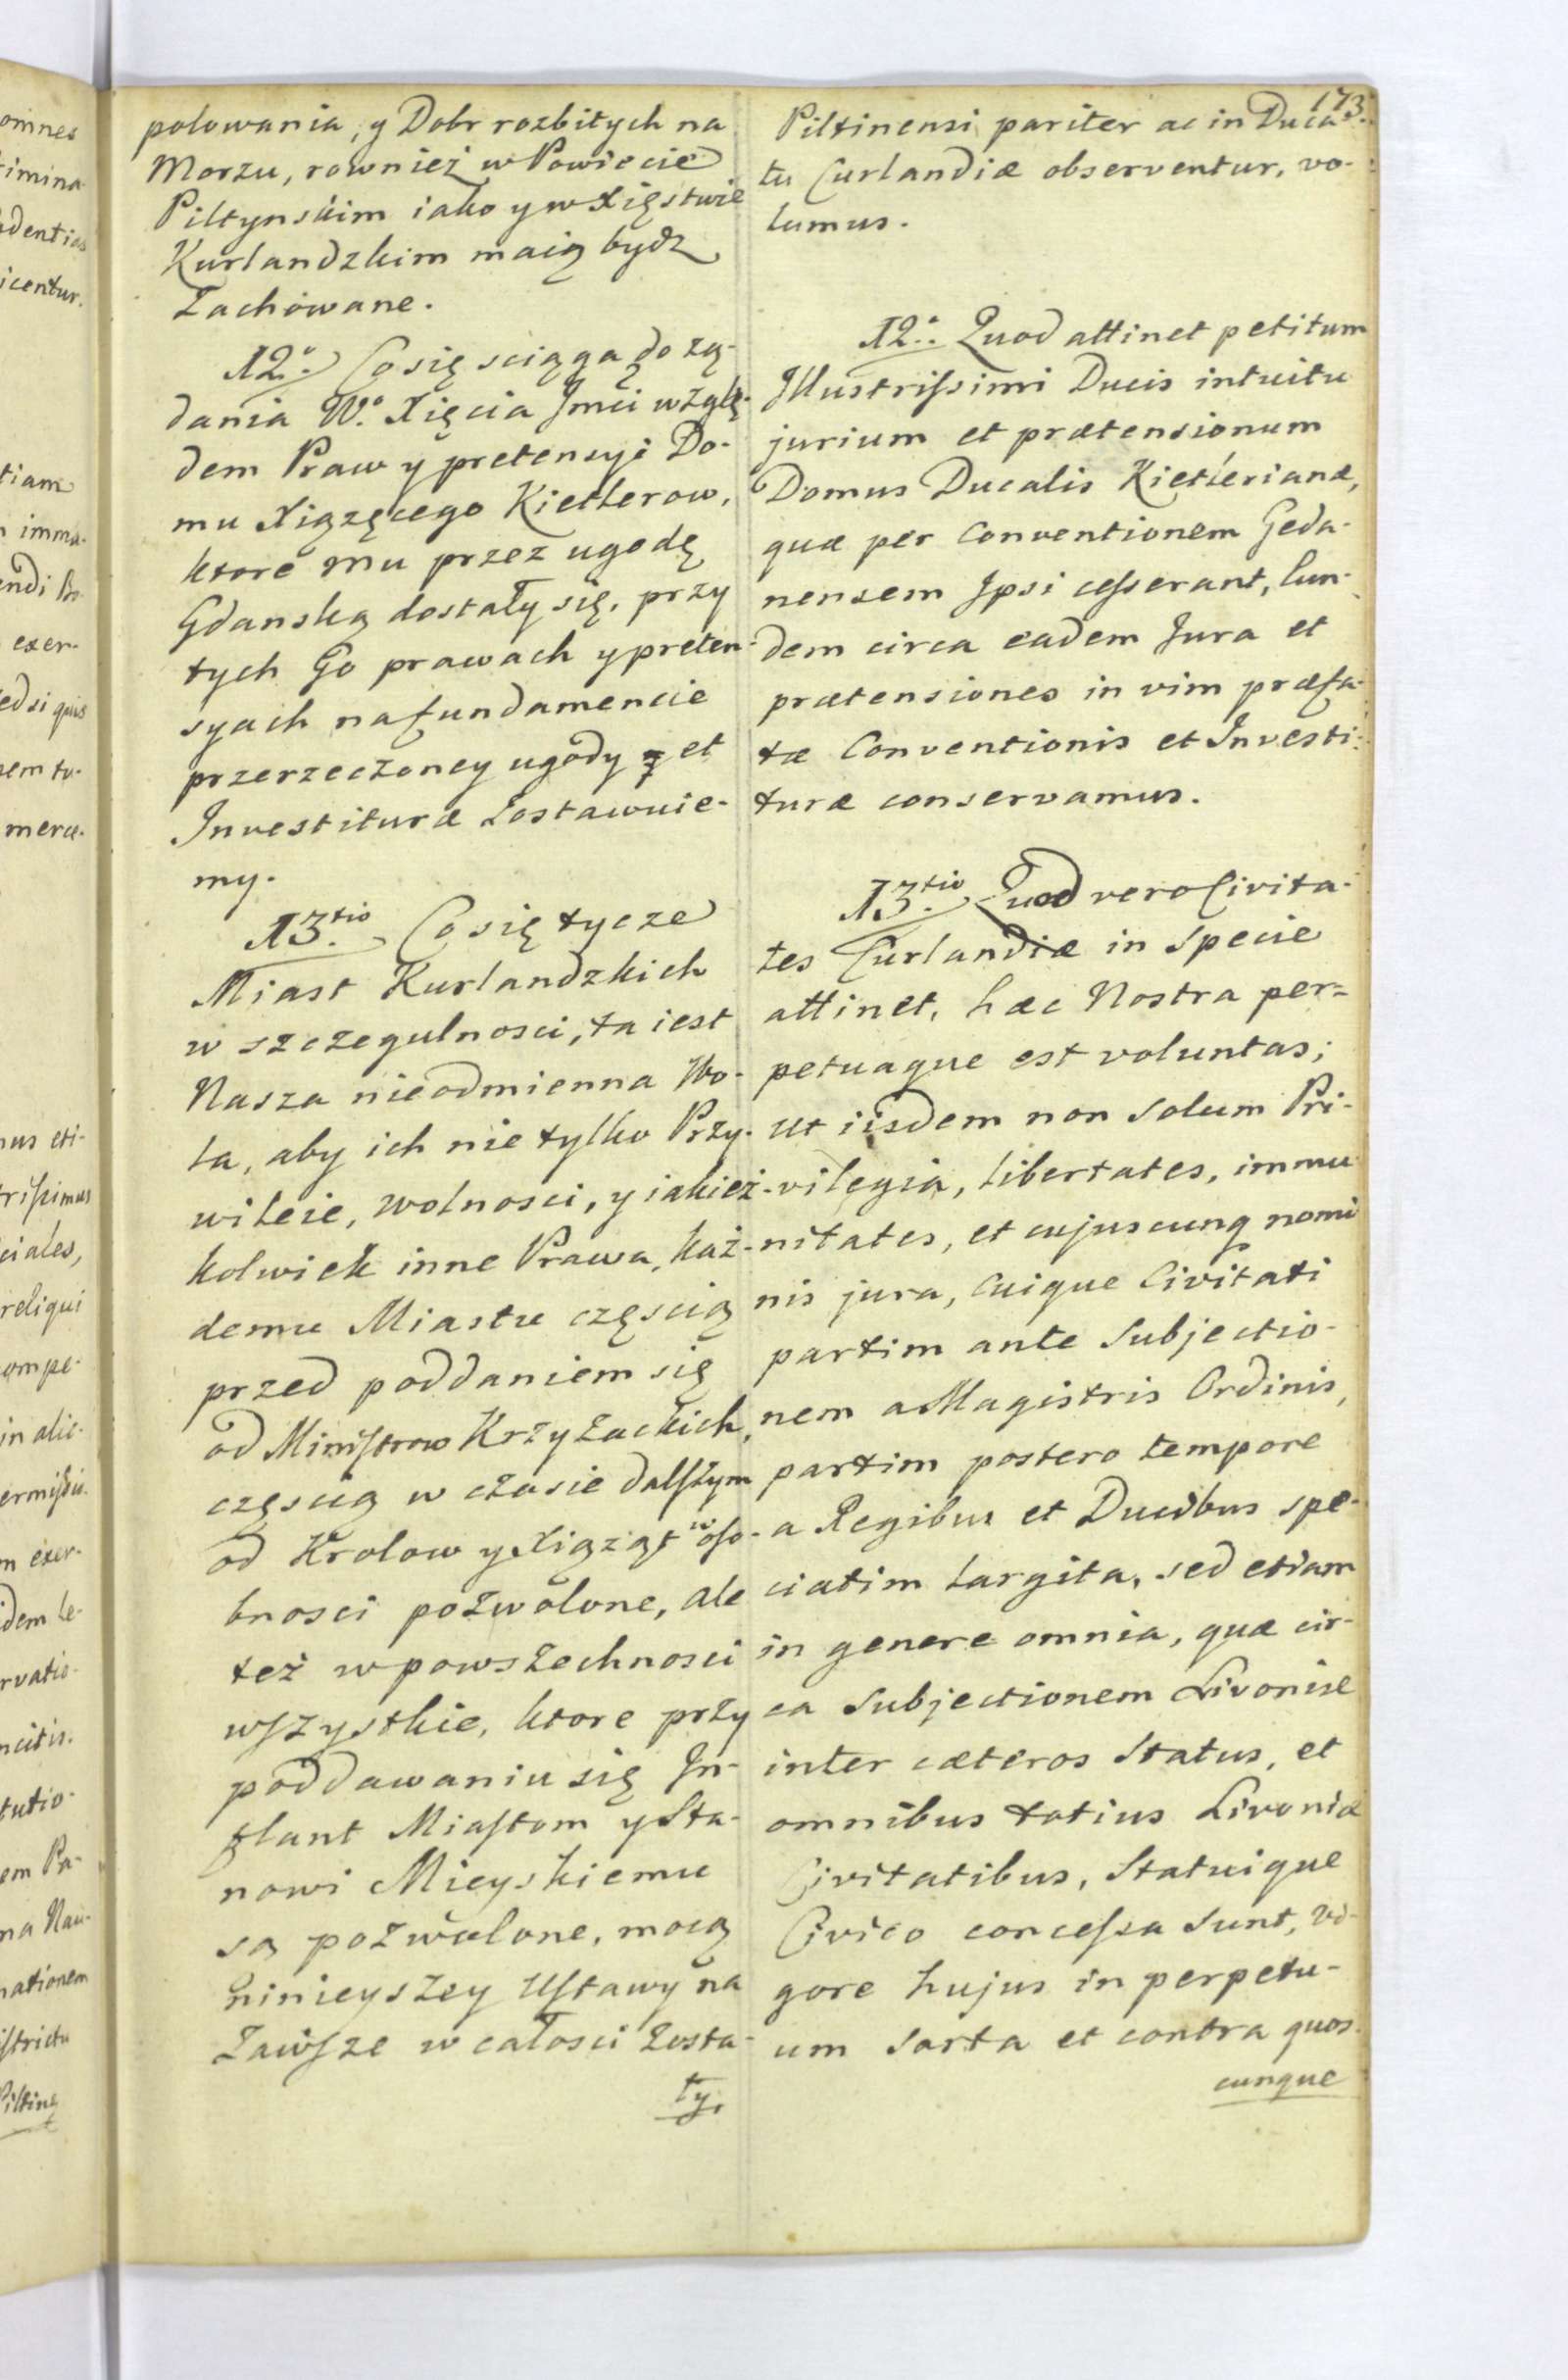 173.
polowania, y Dobr rozbitych na
Morzu, rownież w Powiecie
Piltynskim iako y w Xięstwie
Kurlandzkim maią bydz
Zachowane.
12° Co się sciąga do żą-
dania W.° Xięcia Jmći wzglę-
dem Praw y pretensyi Do-
mu Xiązęcego Kietlerow,
ktore mu przez ugodę
Gdanską dostały się, przy
tych Go prawach y preten-
syach na fundamencie
przerzeczoney ugody et
Investituræ Zostawuie-
my.
13.tio Co się tycze
Miast Kurlandzkich
w szczegulnosci, ta iest
Nasza nieodmienna Wo-
la, aby ich nie tylko Przy-
wileie, wolnosci, y iakież-
kolwiek inne Prawa, każ-
demu Miastu częscią
przed poddaniem się
od Ministrow Krzyżackich,
częscią w czasie dalszym
od Krolow y Xiążąt w oso-
bnosci pozwolone, ale
też w powszechnosci
wszystkie, ktore przy
poddawaniu się In-
flant Miastom y Sta-
nowi Mieyskiemu
są pozwolone, mocą
ninieyszey Ustawy na
Zawsze w całosci Zosta-
ły.
Piltinensi pariter ac in Duca-
tu Curlandiæ observentur, vo-
lumus.
12.° Quod attinet petitum
Illustrissimi Ducis intuitu
jurium et prætensionum
Domus Ducalis Kietlerianæ,
quæ per Conventionem Geda-
nensem Ipsi cesserant, Eun-
dem circa eadem Jura et
prætensiones in vim præfa-
tæ Conventionis et Investi-
turæ conservamus.
13.tio Quod vero Civita-
tes Curlandiæ in Specie
attinet, hæc Nostra per-
petuaque est voluntas;
Ut iisdem non Solum Pri-
vilegia, libertates, immu
nitates, et cujuscunq nomi
nis jura, Cuique Civitati
partim ante Subjectio-
nem a Magistris Ordinis,
partim postero tempore
a Regibus et Ducibus spe-
ciatim largita, sed etiam
in genere omnia, quæ cir-
ca Subjectionem Livoniæ
inter cæteros Status, et
omnibus totius Livoniæ
Civitatibus, Statuique
Civico concessa Sunt, vi-
gore hujus in perpetu-
um Sarta et contra quos-
cunque